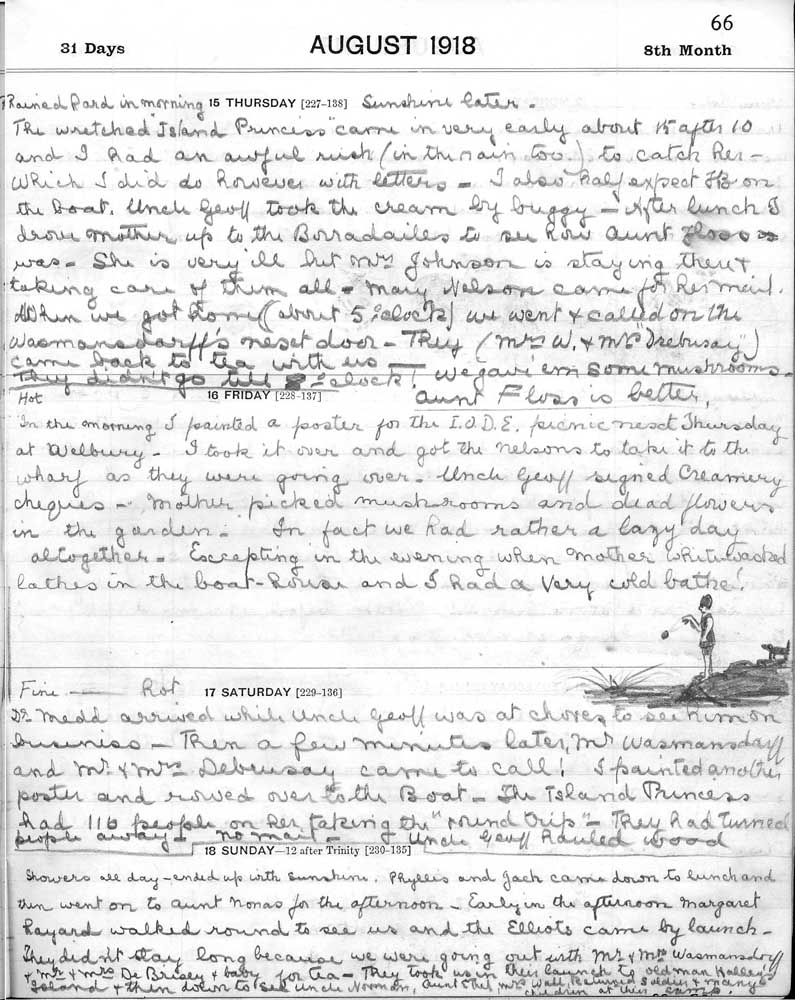 66
31 Days AUGUST 1918 8th Month
Rained Hard in morning 15 THURSDAY [227-138] Sunshine later.
The wretched "Island Princess" came in very early about 15 after 10
and I had an awful rush (in the rain too) to catch her -
Which I did do however with letters - I also half expect on
the boat. Uncle Geoff took the cream by buggy - After lunch I
drove mother up to the Borradailes to see how Aunt Floss
was - She is very ill but Mrs Johnson is staying there &
taking care of them all - Mary Nelson came for her mail.
When we got home (about 5 o'clock) we went & called on the
Wasmansdorff's next door - They (Mrs W. & Mrs "Drebusay")
came back to tea with us -
They didn't go till 8 o'clock! We gave 'em some mushrooms -
Hot 16 FRIDAY [228-137] Aunt Floss is better.
In the morning I painted a poster for the I.O.D.E. picnic next Thursday
at Welbury - I took it over and got the Nelsons to take it to the
wharf as they were going over - Uncle Geoff signed Creamery
cheques - Mother picked mushrooms and dead flowers
in the garden - In fact we had rather a lazy day
altogether - Excepting in the evening when Mother whitewashed
lathes in the boat-house and I had a Very cold bathe!
Fine - Hot 17 SATURDAY [229-136]
Dr Medd arrived while Uncle Geoff was at chores to see him on
business - Then a few minutes later, Mr Wasmansdorff
and Mr & Mrs Debrusay came to call! I painted another
poster and rowed over to the Boat - The Island Princess
had 116 people on her taking the "round trip" - They had turned
people away - no mail - Uncle Geoff hauled wood
18 SUNDAY—12 after Trinity [230-135]
Showers all day - ended up with sunshine. Phyllis and Jack came down to lunch and
then went on to Aunt Nonas for the afternoon - Early in the afternoon Margaret
Rayard walked round to see us and the Elliots came by launch -
They didn't stay long because we were going out with Mr & Mrs Wasmansdorff
& Mr & Mrs De Brisey & baby for tea - They took us in their launch to old man
Island & then down to see Uncle Norman, Aunt Mrs Wall, Returned Soldier & many
children at their camp.